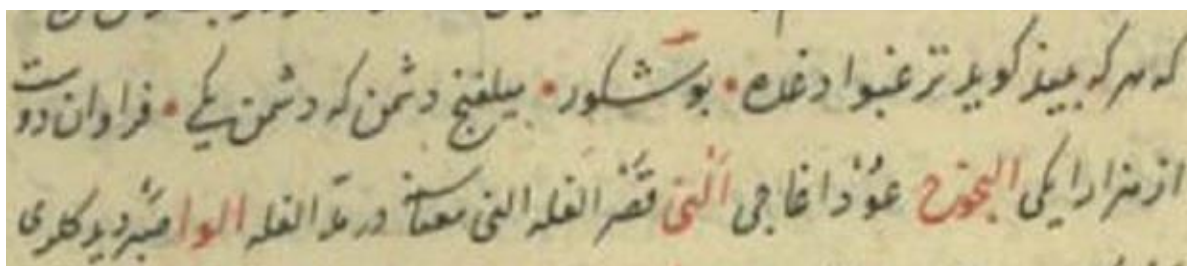 که هر که بیند کوید تز غنبوا دغده • بوشکور • بیلفنج دشمن که دشمن یکی • فراوان دوست
از هزار النجوج عود اغاجی النی قصر الفله النی معناسنه در مد الفله الوا صبر دیدکلری